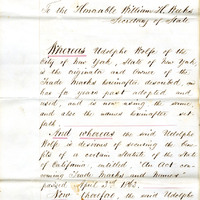 To the Honorable William H. Weeks
Secretary of State
Whereas Adolphe Wolfe of the
City of New York, State of New York
is the originator and owner of the
Trade Marks hereinafter described, and
has for years past adopted and
used, and is now using the same
and also the names hereinafter set
forth
And whereas the said Udolpho
Wolfe is desirous of securing the bene-
fits of a certain Statute of the State
of California, entitled "An Act con-
cerning Trade Marks and Names"
passed April 3d 1863.
Now Therefore, the said Udolpho